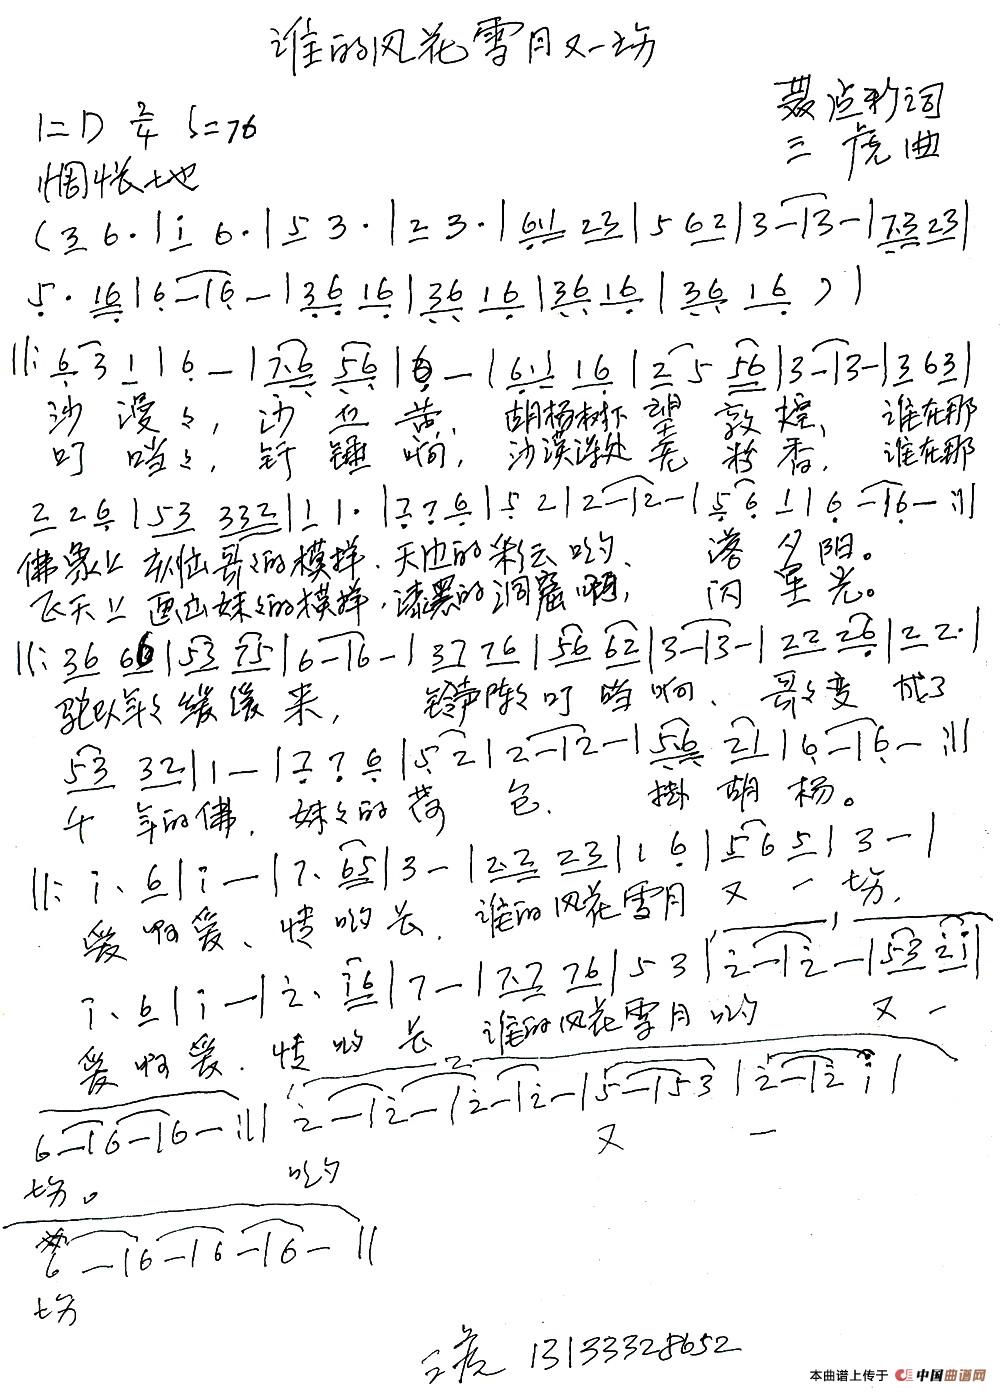 谁的风花雪月又一场
1=D 2/4 ♩=76
聂 珍词
三虎曲
惆怅地
(3 6·|i 6·|5 3·|2 3·|61 23|5 62|3-|3-|7·3 23|
5·16|6-|6-|36 16|36 16|36 16|36 16)|
‖:6 3 1|6-|7·6 56|6-|6·1 16|2 5 56|3-|3-|3 63|
沙漫々，沙也苦，胡杨树下望敦煌，谁在那
叮当々，钎锤响，沙漠深处 粉香，谁在那
2 2 6|53 332|1 1·|7 7 6|5 2|2-|2-|5 6 1|6-|6-:‖
佛象上 哥々的模样，天边的彩云哟，落夕阳。
飞天上画出妹々的模样，漆黑的洞窟啊，闪星光。
‖:36 66|53 75|6-|6-|37 76|56 62|3-|3-|22 26|2 2·|
驼队年々缓缓来，铃声阵々叮当响，哥々变成了
53 32|1-|7 7 6|5 2|2-|2-|5·6 21|6-|6-:‖
千年的佛，妹々的荷包，掛胡杨。
‖:i·6|i-|7·65|3-|2·2 23|1 6|5 6 5|3-|
爱啊爱、情哟长，谁的风花雪月又一场，
i·6|i-|2·i6|7-|7·7 76|5 3|2-|2-|53 2i|
爱啊爱．情哟长 谁的风花雪月哟 又一
6-|6-|6-:‖ 2-|2-|2-|2-|5-|5 3|2-|2 i|
场。 哟 又 一
6-|6-|6-|6-‖
场
三虎 13133328652
本曲谱上传于 中国曲谱网